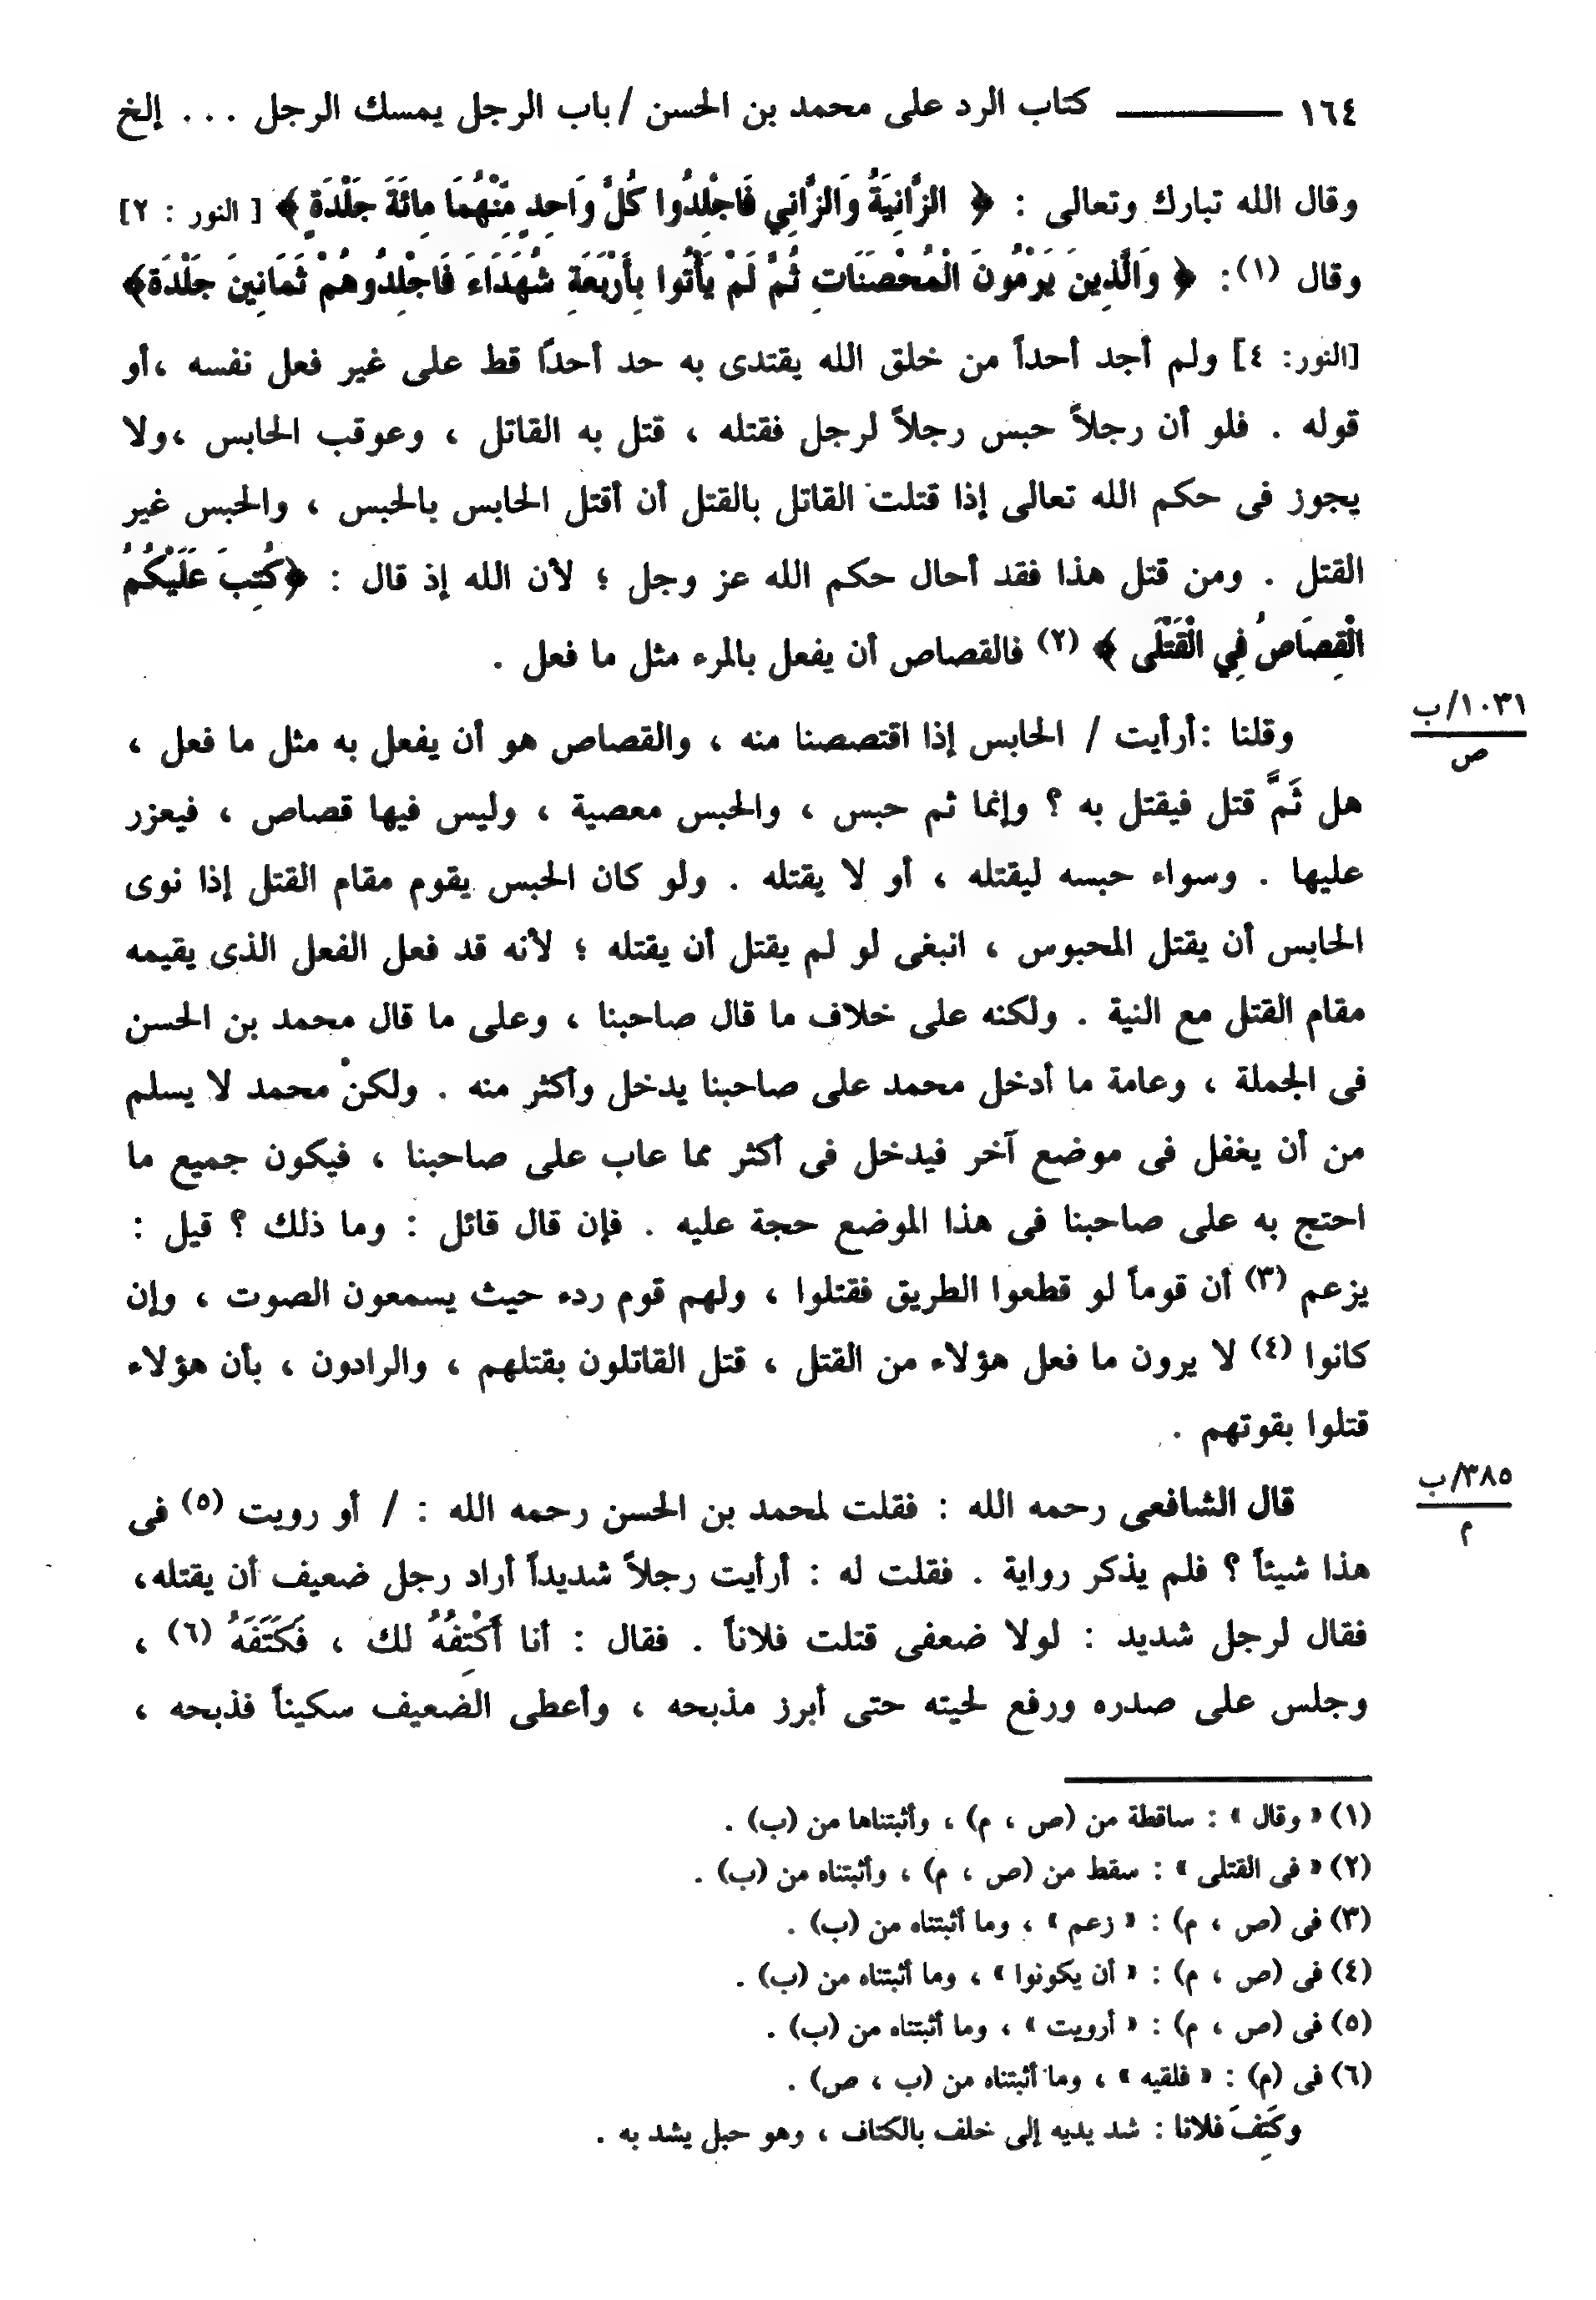 ١٦٤ ــــــــــ كتاب الرد على محمد بن الحسن / باب الرجل يمسك الرجل . . . إلخ
وقال الله تبارك وتعالى : ﴿ الزَّانِيَةُ وَالزَّانِي فَاجْلِدُوا كُلَّ وَاحِدٍ مِّنْهُمَا مِائَةَ جَلْدَةٍ ﴾ [ النور : ٢]
وقال (١) : ﴿ وَالَّذِينَ يَرْمُونَ الْمُحْصَنَاتِ ثُمَّ لَمْ يَأْتُوا بِأَرْبَعَةِ شُهَدَاءَ فَاجْلِدُوهُمْ ثَمَانِينَ جَلْدَة﴾
[النور: ٤] ولم أجد أحداً من خلق الله يقتدى به حد أحداً قط على غير فعل نفسه ،أو
قوله . فلو أن رجلاً حبس رجلاً لرجل فقتله ، قتل به القاتل ، وعوقب الحابس ،ولا
يجوز فى حكم الله تعالى إذا قتلت القاتل بالقتل أن أقتل الحابس بالحبس ، والحبس غير
القتل . ومن قتل هذا فقد أحال حكم الله عز وجل ؛ لأن الله إذ قال : ﴿كُتِبَ عَلَيْكُمُ
الْقِصَاصُ فِي الْقَتْلَى ﴾ (٢) فالقصاص أن يفعل بالمرء مثل ما فعل .
١٠٣١/ب
ص
وقلنا :أرأيت / الحابس إذا اقتصصنا منه ، والقصاص هو أن يفعل به مثل ما فعل ،
هل ثَمَّ قتل فيقتل به ؟ وإنما ثم حبس ، والحبس معصية ، وليس فيها قصاص ، فيعزر
عليها . وسواء حبسه ليقتله ، أو لا يقتله . ولو كان الحبس يقوم مقام القتل إذا نوى
الحابس أن يقتل المحبوس ، انبغى لو لم يقتل أن يقتله ؛ لأنه قد فعل الفعل الذى يقيمه
مقام القتل مع النية . ولكنه على خلاف ما قال صاحبنا ، وعلى ما قال محمد بن الحسن
فى الجملة ، وعامة ما أدخل محمد على صاحبنا يدخل وأكثر منه . ولكنْ محمد لا يسلم
من أن يغفل فى موضع آخر فيدخل فى أكثر مما عاب على صاحبنا ، فيكون جميع ما
احتج به على صاحبنا فى هذا الموضع حجة عليه . فإن قال قائل : وما ذلك ؟ قيل :
يزعم (٣) أن قوماً لو قطعوا الطريق فقتلوا ، ولهم قوم ردء حيث يسمعون الصوت ، وإن
كانوا (٤) لا يرون ما فعل هؤلاء من القتل ، قتل القاتلون بقتلهم ، والرادون ، بأن هؤلاء
قتلوا بقوتهم .
٣٨٥/ب
م
قال الشافعى رحمه الله : فقلت لمحمد بن الحسن رحمه الله : / أو رويت (٥) فى
هذا شيئاً ؟ فلم يذكر رواية . فقلت له : أرأيت رجلاً شديداً أراد رجل ضعيف أن يقتله،
فقال لرجل شديد : لولا ضعفى قتلت فلاناً . فقال : أنا أَكْتِفُهُ لك ، فَكَتَفَهُ (٦) ،
وجلس على صدره ورفع لحيته حتى أبرز مذبحه ، وأعطى الضعيف سكيناً فذبحه ،
(١) « وقال » : ساقطة من (ص ، م) ، وأثبتناها من (ب) .
(٢) « فى القتلى » : سقط من (ص ، م) ، وأثبتناه من (ب) .
(٣) فى (ص ، م) : « زعم » ، وما أثبتناه من (ب) .
(٤) فى (ص ، م) : « أن يكونوا » ، وما أثبتناه من (ب) .
(٥) فى (ص ، م) : « أرويت » ، وما أثبتناه من (ب) .
(٦) فى (م) : « فلقيه » ، وما أثبتناه من (ب ، ص) .
وكَتِفَ فلانا : شد يديه إلى خلف بالكتاف ، وهو حبل يشد به .